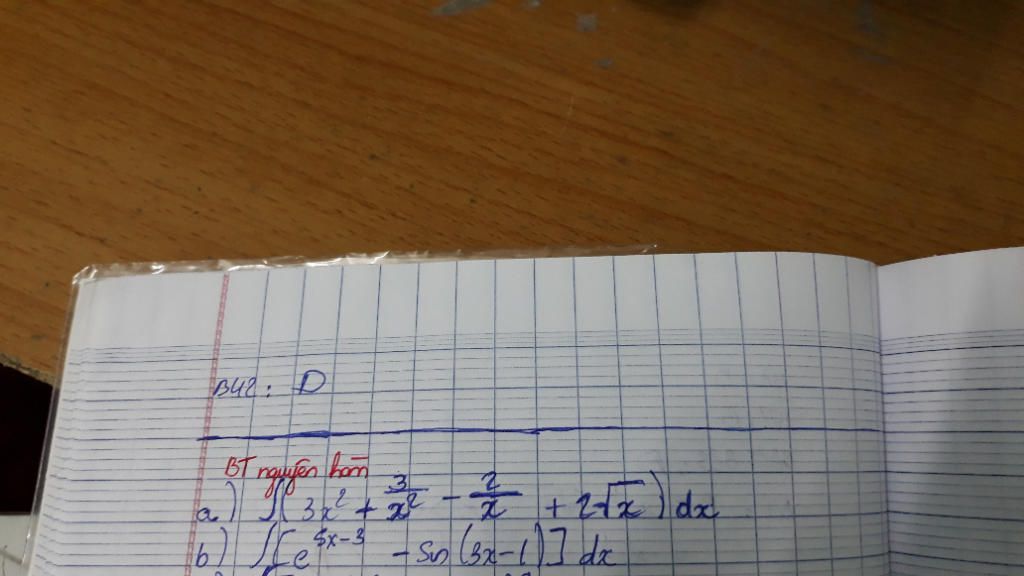 B42 : D
BT nguyên hàm
a) ∫(3x² + 3/x² - 2/x + 2√x) dx
b) ∫[e^(5x-3) - sin(3x-1)] dx